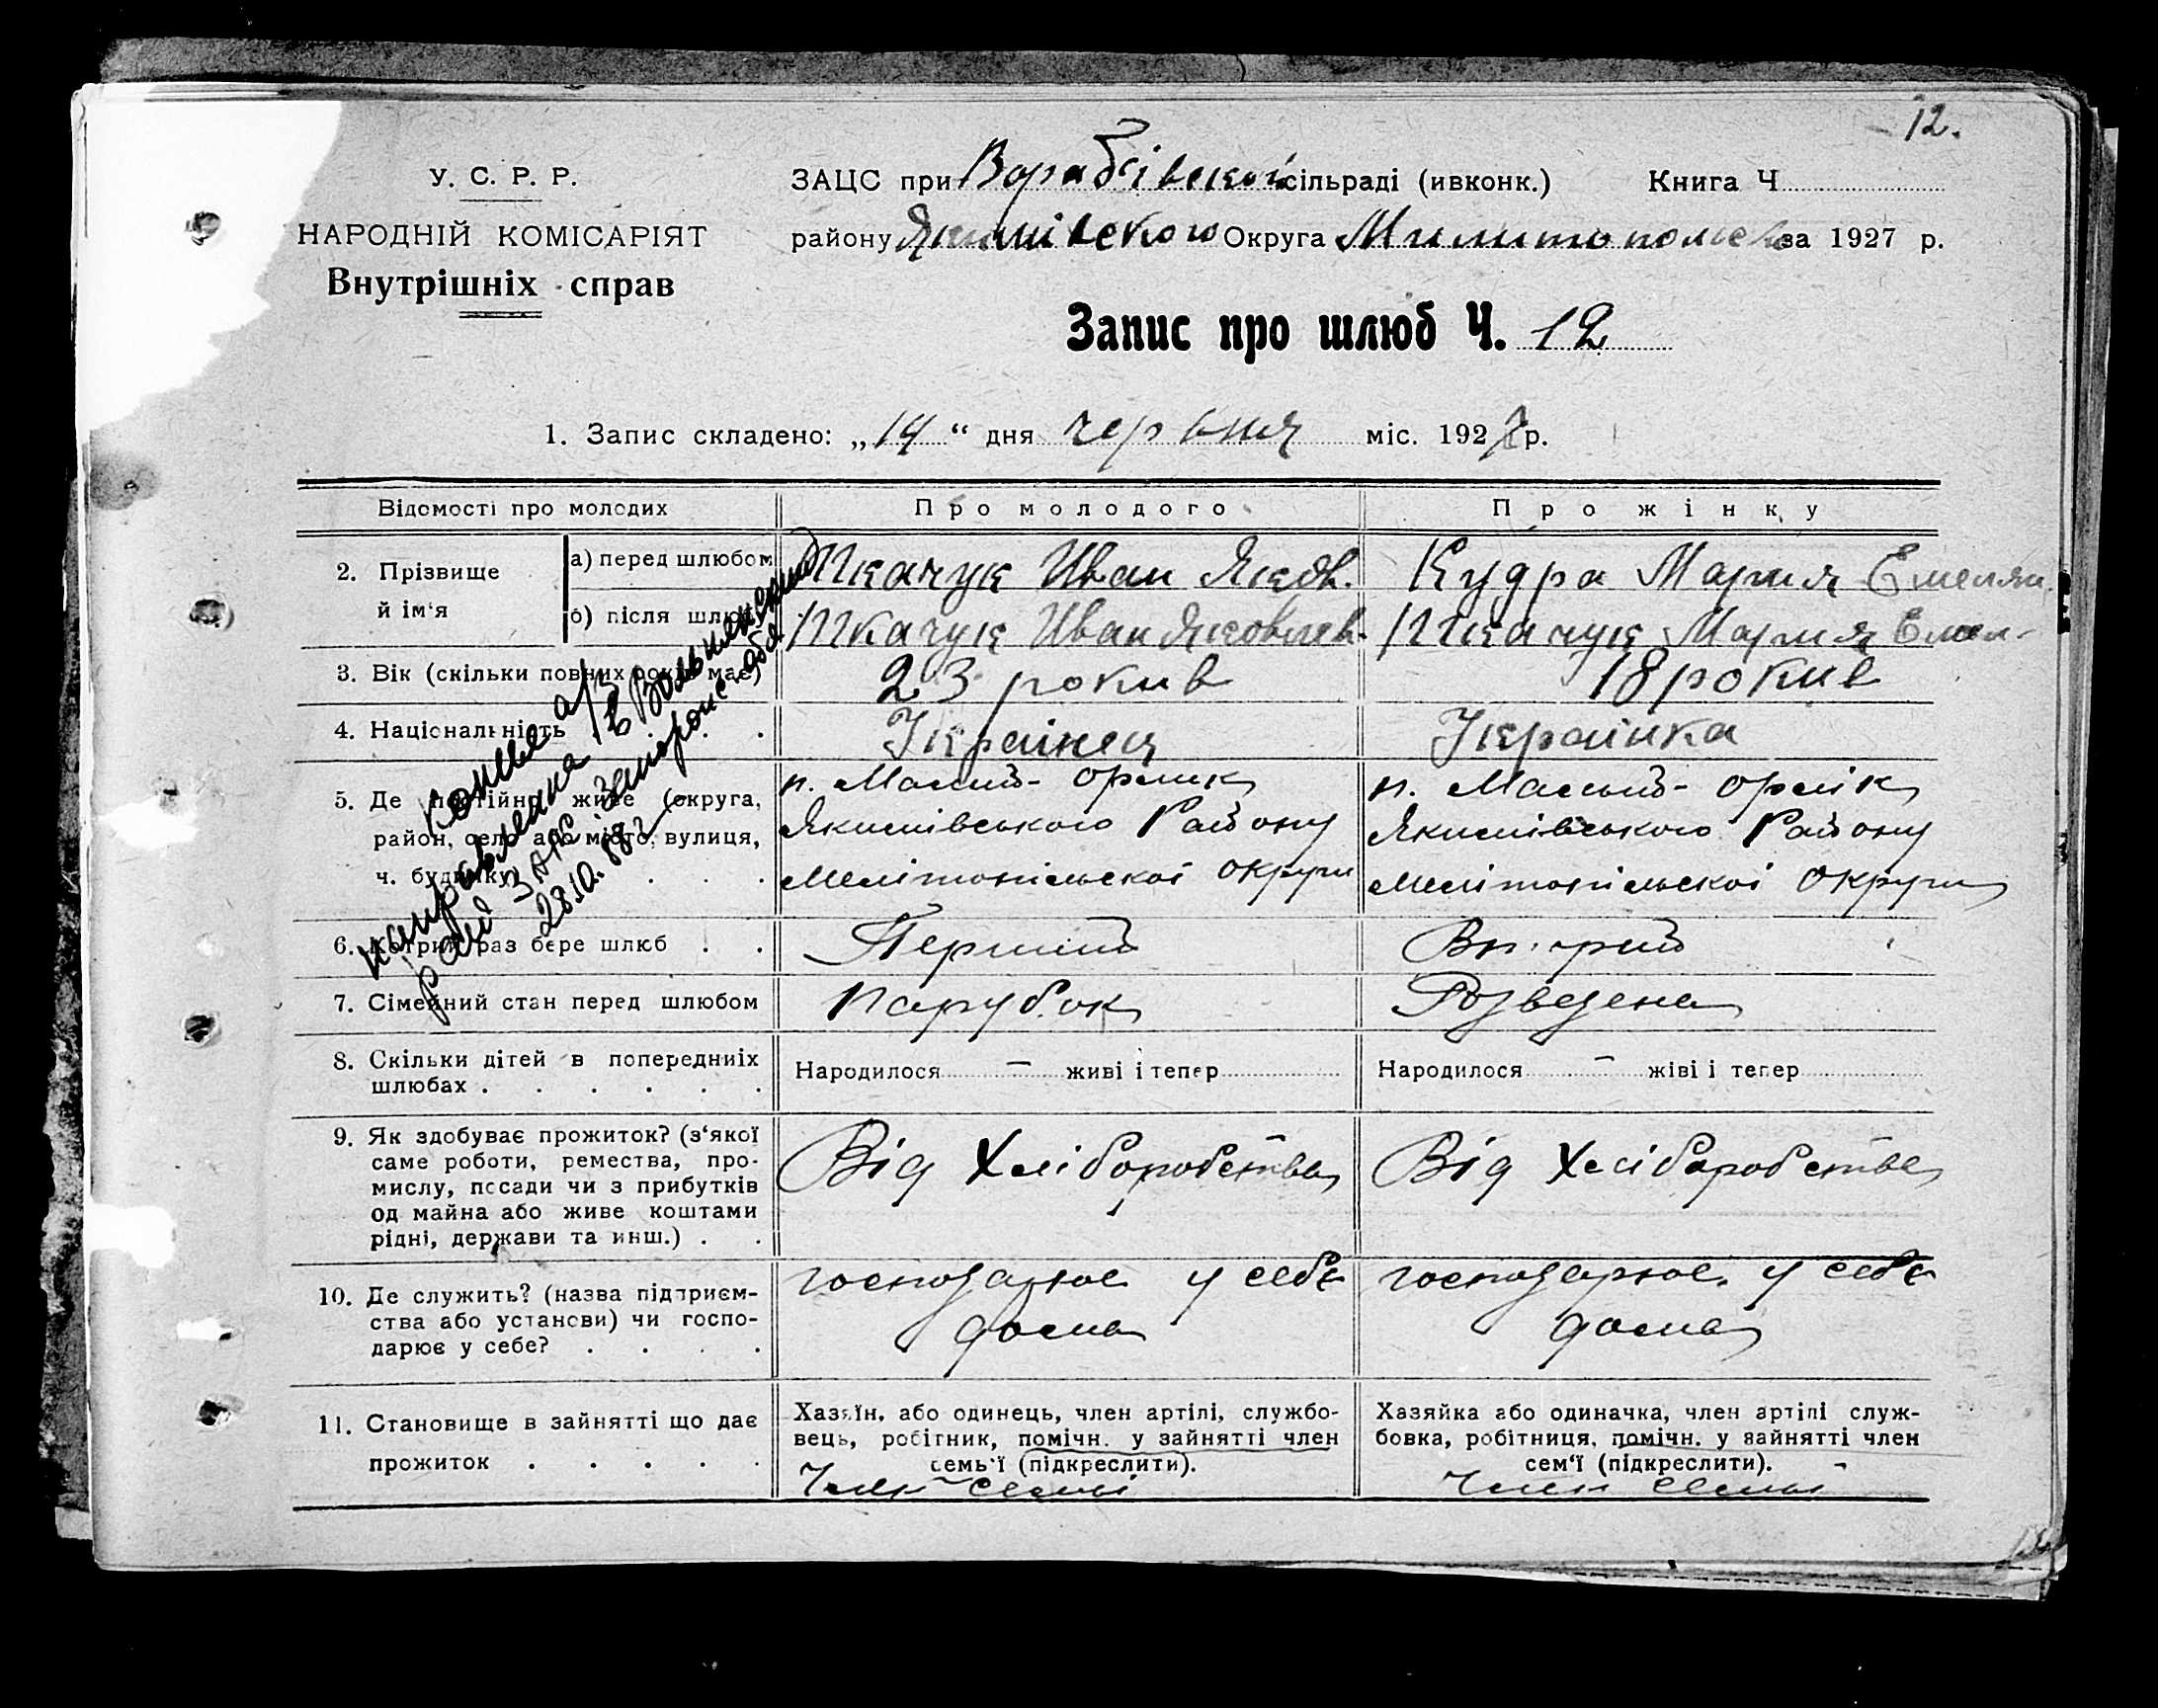 12.
У. С. Р. Р.
НАРОДНІЙ КОМІСАРІЯТ
Внутрішніх справ
ЗАЦС при Вораб'івской сільраді (ивконк.) Книга Ч
району Якимівского Округа за 1927 р.
Запис про шлюб Ч. 12
1. Запис складено: „14“ дня червня міс. 1927 р.
Відомості про молодих
Про молодого
Про жінку
2. Прізвище й ім‘я
а) перед шлюбом
Ткачук Иван Яковл.
Кудра Мария Емелян.
б) після шлюбу
Ткачук Иван Яковлев.
Ткачук Мария Емел-
3. Вік (скільки повних років має)
23 рокив
18 рокив
4. Національність
Українец
Українка
5. Де постійно живе (округа,
район, село або місто, вулиця,
ч. будинку)
п. Малий- орлик
Якимівського Району
Мелітопільскої округи
п. Малий- орлік
Якимівського Району
Мелітопільскої округи
6. Котрий раз бере шлюб
Перший
7. Сімейний стан перед шлюбом
Парубок
Розведена
8. Скільки дітей в попередниіх
шлюбах
Народилося — живі і тепер
Народилося — жіві і тепер
9. Як здобуває прожиток? (з‘якої
саме роботи, ремества, про-
мислу, посади чи з прибутків
од майна або живе коштами
рідні, держави та инш.)
Від Хліборобства
Від Хліборобства
10. Де служить? (назва підприєм-
ства або установи) чи госпо-
дарює у себе?
господарює у себе
дома
господарює у себе
дома
11. Становище в зайнятті що дає
прожиток
Хазяїн, або одинець, член артілі, службо-
вець, робітник, помічн. у зайнятті член
семь‘ї (підкреслити).
Член семьі
Хазяйка або одиначка, член артілі служ-
бовка, робітниця, помічн. у зайнятті член
сем‘ї (підкреслити).
Член семьі
Копия а/з
направлена в Вольнянский
рай ЗАГС Запорожс. обл.
28.10.88г